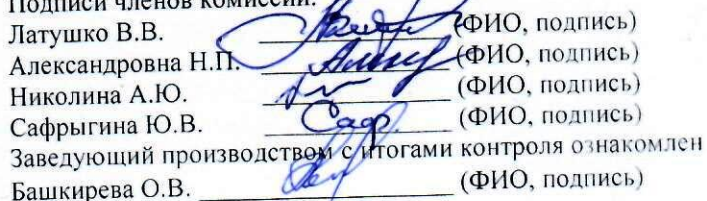 Подписи членов комиссии:
Латушко В.В. (ФИО, подпись)
Александровна Н.П. (ФИО, подпись)
Николина А.Ю. (ФИО, подпись)
Сафрыгина Ю.В. Саф (ФИО, подпись)
Заведующий производством с итогами контроля ознакомлен
Башкирева О.В. (ФИО, подпись)